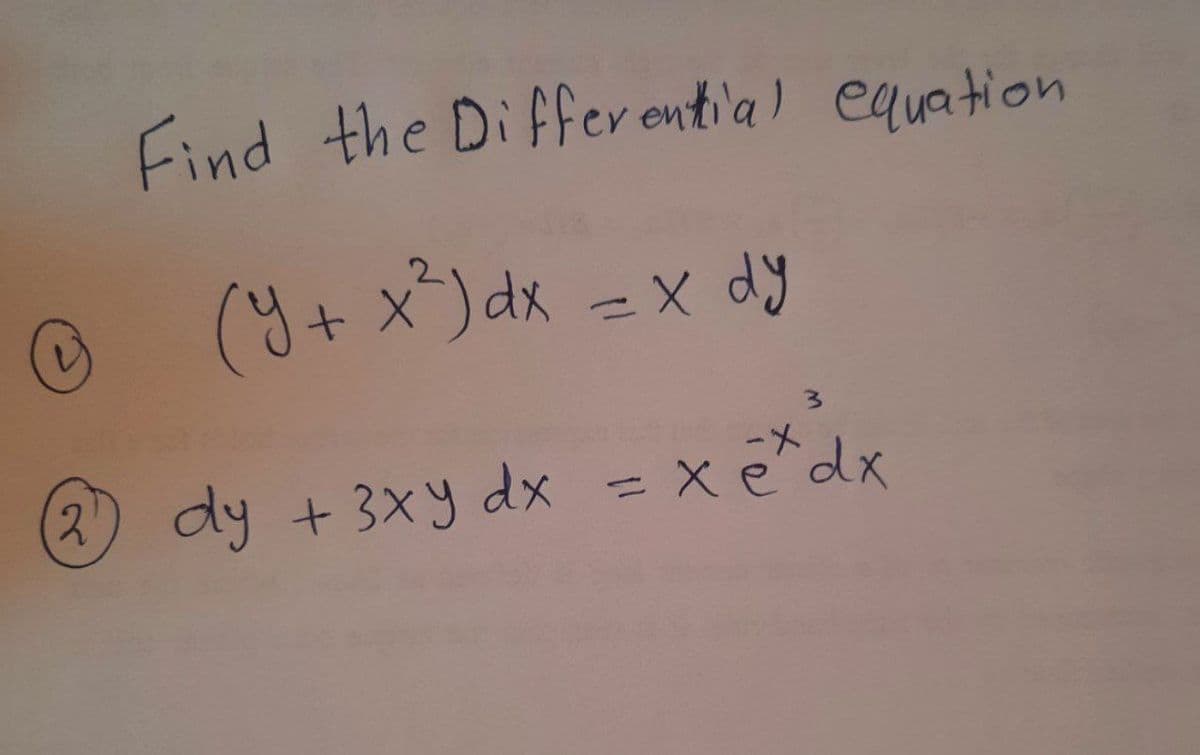 Find the Differential equation
① (y + x²) dx = x dy
② dy + 3xy dx = x e^-x³ dx